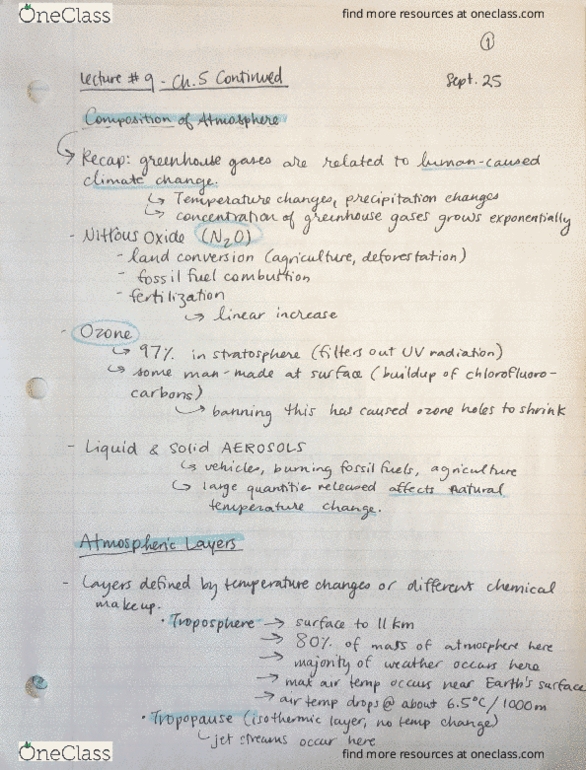 OneClass
find more resources at oneclass.com
1
Lecture # 9 - Ch.5 Continued
Sept. 25
Composition of Atmosphere
Recap: greenhouse gases are related to human-caused
climate change.
↳ Temperature changes, precipitation changes
↳ concentration of greenhouse gases grows exponentially
- Nitrous Oxide (N2O)
- land conversion (agriculture, deforestation)
- fossil fuel combustion
- fertilization
↳ linear increase
- Ozone
↳ 97% in stratosphere (filters out UV radiation)
↳ some man-made at surface (buildup of chlorofluoro-
carbons)
↳ banning this has caused ozone holes to shrink
- Liquid & Solid AEROSOLS
↳ vehicles, burning fossil fuels, agriculture
↳ large quantities released affects natural
temperature change.
Atmospheric Layers
- Layers defined by temperature changes or different chemical
makeup.
• Troposphere → surface to 11 km
→ 80% of mass of atmosphere here
→ majority of weather occurs here
→ max air temp occurs near Earth's surface
→ air temp drops @ about 6.5°C/1000m
• Tropopause (isothermic layer, no temp change)
↳ jet streams occur here
OneClass
find more resources at oneclass.com